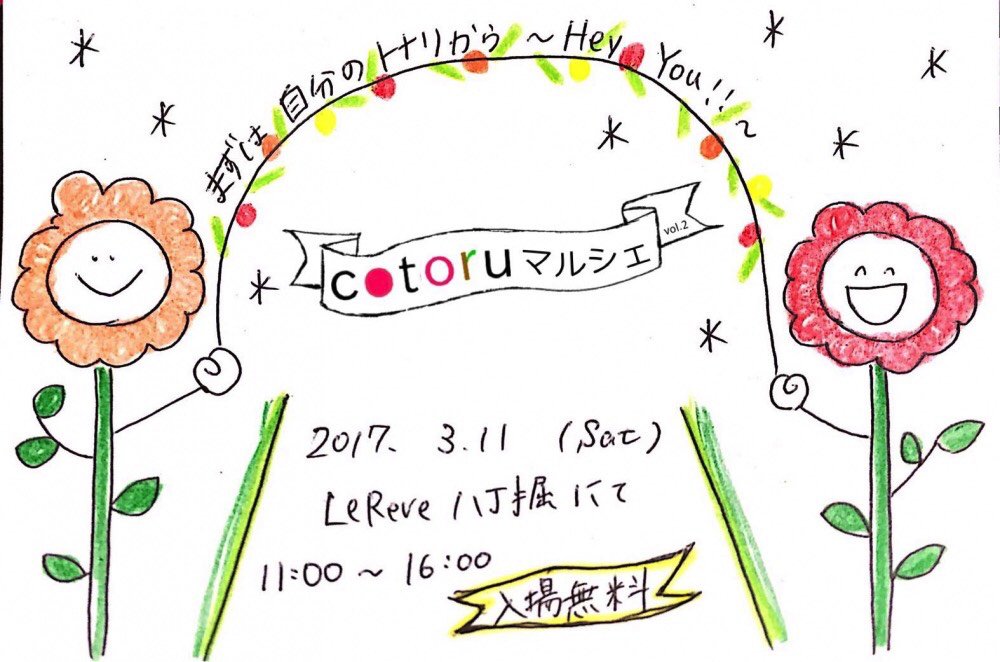 まずは自分のトナリから ～Hey You!!～
cotoru マルシェ vol.2
2017. 3.11 (Sat)
LeReve 八丁堀にて
11:00 ~ 16:00
入場無料